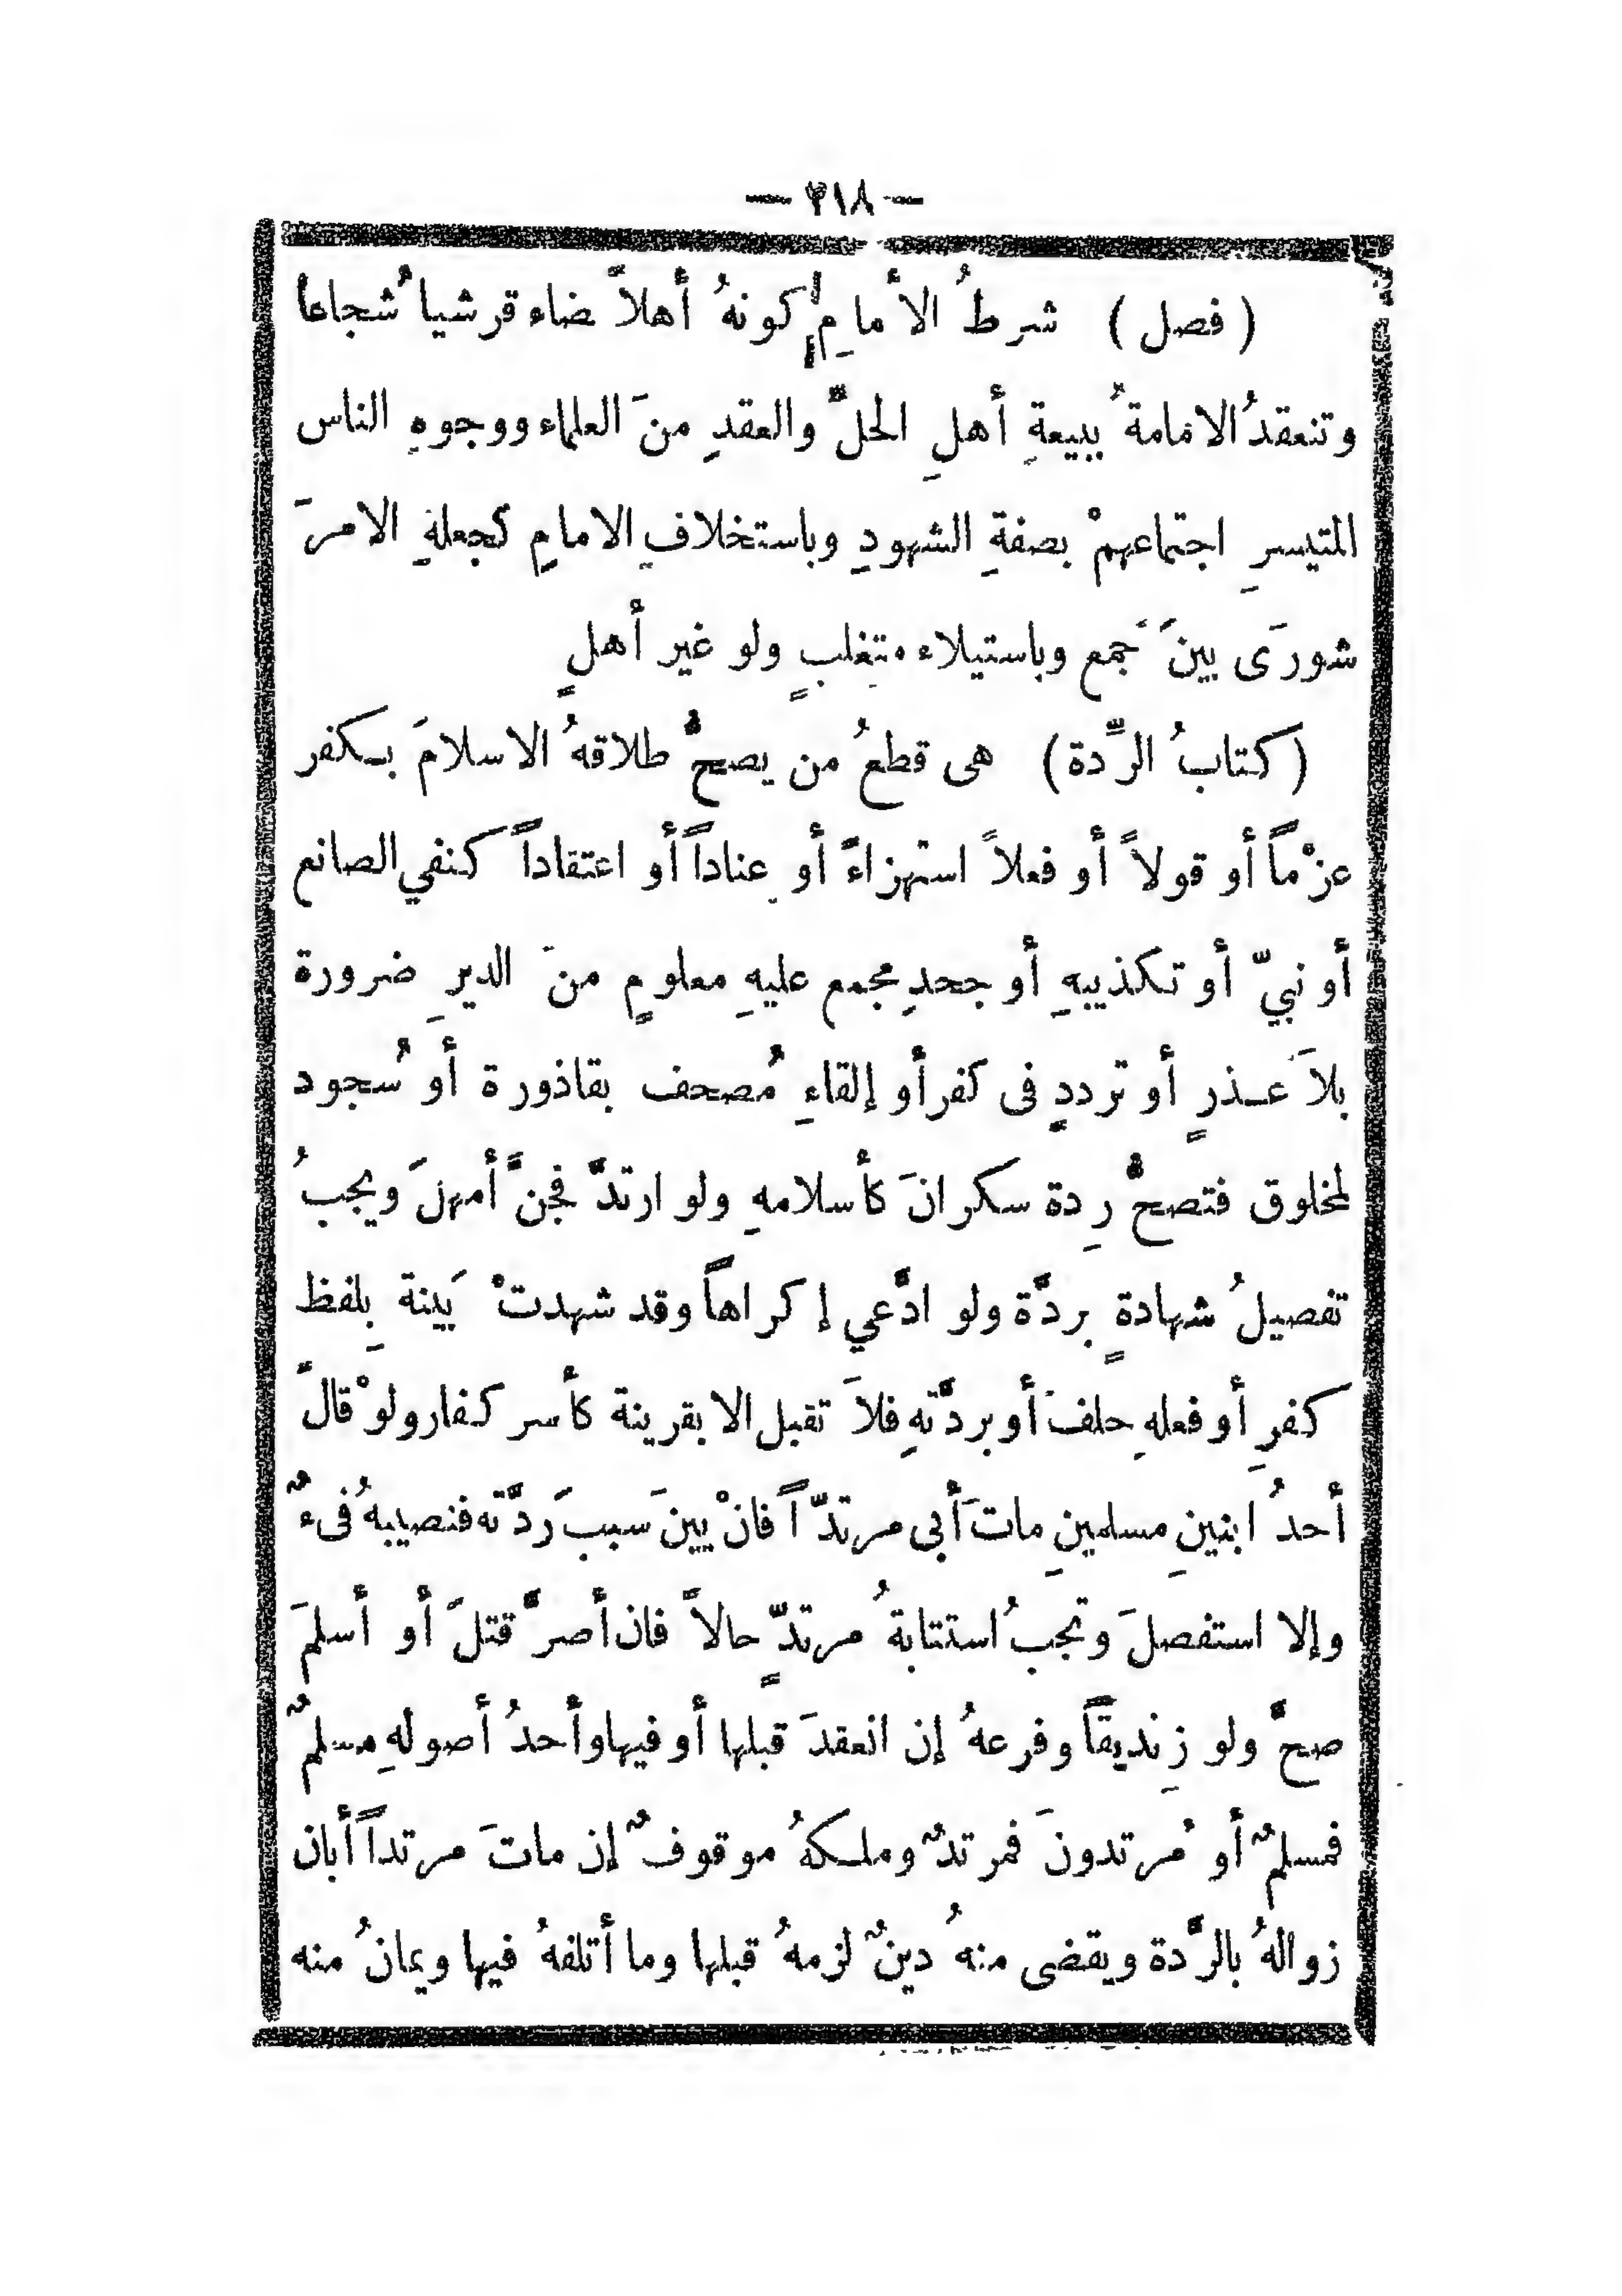 — ٣١٨ —
( فصل ) شرطُ الأمامِ كونهُ أهلاً ضاء قرشياُ شجاعاً
وتنعقدُ الامامةُ ببيعةِ أهلِ الحلِّ والعقدِ منَ العلماء ووجوهِ الناس
المتيسرِ اجتماعهمْ بصفةِ الشهودِ وباستخلافِ الامامِ كجعلهِ الامرَ
شورَى بينَ جَمع وباستيلاء متغلبٍ ولو غير أهلٍ
( كتابُ الرِّدة ) هى قطعُ من يصحُّ طلاقهُ الاسلامَ بكفر
عزْماً أو قولاً أو فعلاً استهزاءً أو عِناداً أو اعتقاداً كنفي الصانع
أو نبيّ أو تكذيبهِ أو جحدِ مجمع عليهِ معلومٍ منَ الدينِ ضرورة
بلاَ عـذرٍ أو ترددٍ فى كفر أو إلقاءِ مُصحف بقاذورة أو سُجود
لمخلوق فتصحُّ رِدة سكرانَ كأسلامهِ ولو ارتدَّ فجنَّ أمهلَ ويجبُ
تفصيلُ شهادةٍ بردَّة ولو ادَّعي إكراهاً وقد شهدتْ بَينة بِلفظ
كفرِ أو فعلهِ حلفَ أو بردَّتهِ فلاَ تقبل الا بقرينة كأسر كفار ولوْ قالَ
أحدُ ابنينِ مسلمينِ ماتَ أبى مرتدّاً فانْ بينَ سَببَ ردَّته فنصيبهُ فىءٌ
وإلا استفصلَ وتجبُ استتابةُ مرتدٍّ حالاً فان أصرَّ قتلَ أو أسلمَ
صحَّ ولو زِنديقاً وفرعهُ إن انعقدَ قبلها أو فيها وأحدُ أصولهِ مسلمٌ
فمسلمٌ أو مُرتدونَ فمرتدٌّ وملـكهُ موقوفٌ إن ماتَ مرتداً أبان
زوالهُ بالرَّدة ويقضى منهُ دينٌ لزمهُ قبلها وما أتلفهُ فيها ويمانُ منه